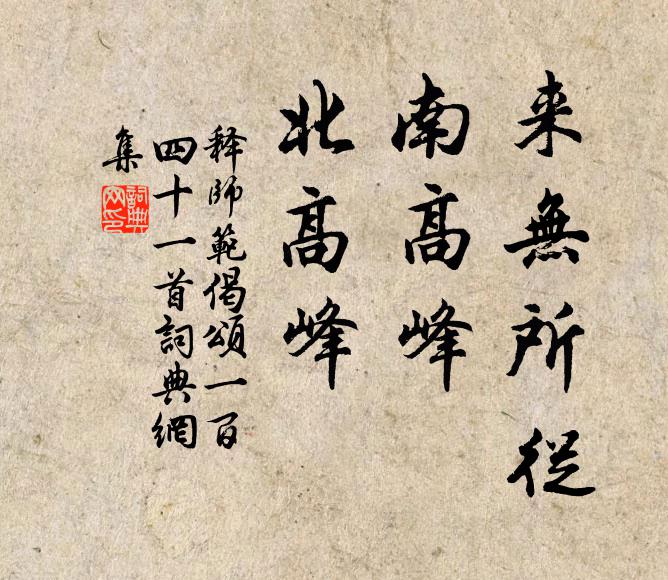 来無所從
南高峰
北高峰
释師範偈頌一百
四十一首詞典網
集
詞典
网印